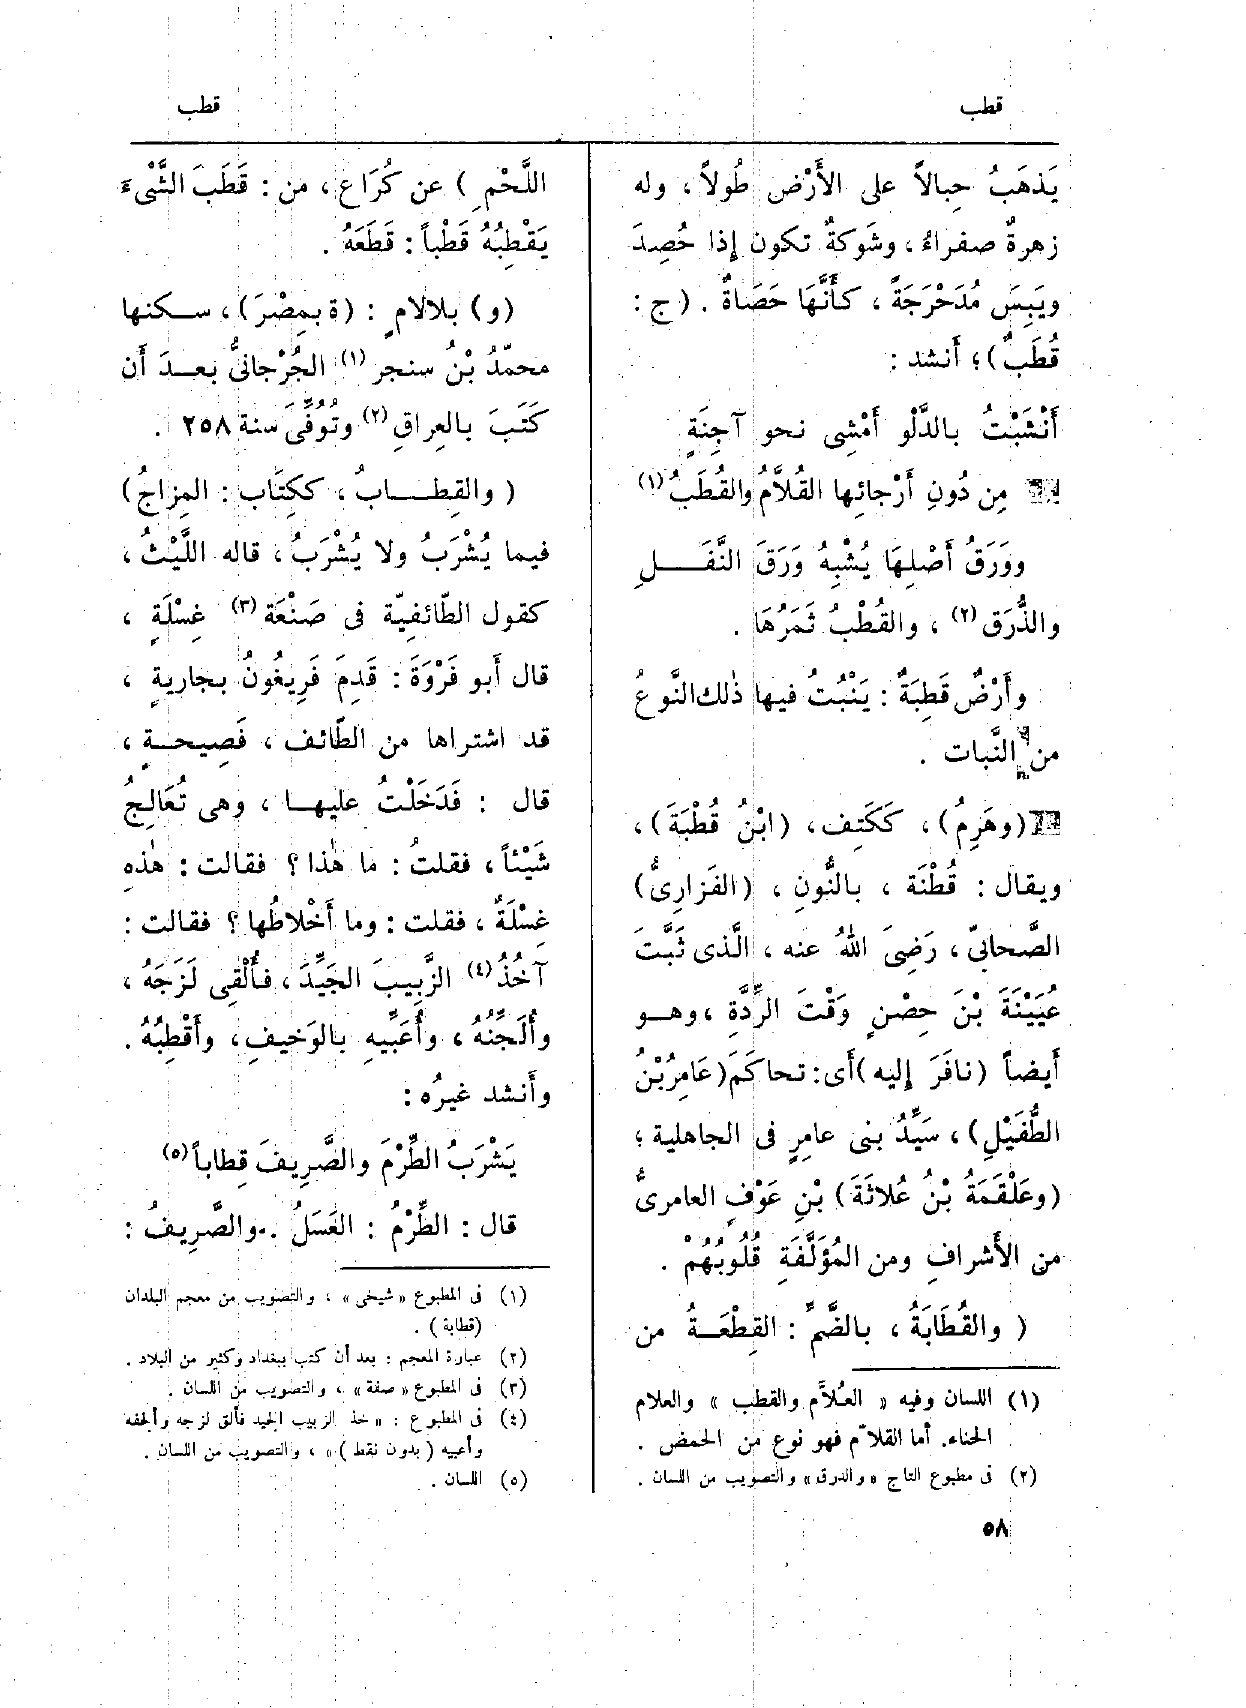 قطب
قطب
يَذهَبُ حِبالاً على الأَرْض طُولاً، وله
زهرةٌ صفراءُ، وشَوكةٌ تكون إذا حُصِدَ
ويَبِسَ مُدَحْرَجَةً، كأَنَّهَا حَصَاةٌ . (ج :
قُطَبٌ)؛ أَنشد :
أَنْشَبْتُ بالدَّلْو أَمْشِى نحو آجِنَةٍ
مِن دُونِ أَرْجائِها القُلاَّمُ والقُطَبُ (١)
ووَرَقُ أَصْلِهَا يُشْبِهُ وَرَقَ النَّفَـــلِ
والذُّرَق (٢) ، والقُطْبُ ثَمَرُهَا .
وأَرْضٌ قَطِبَةٌ : يَنْبُتُ فيها ذٰلك النَّوعُ
من النَّبات .
(وهَرِمُ)، ككَتِف، (ابْنُ قُطْبَةَ)،
ويقال : قُطْنَة ، بالنُّونِ ، (الفَزارِىُّ)
الصَّحابىّ، رَضِىَ اللهُ عنه ، الَّذى ثَبَّتَ
عُيَيْنَةَ بْنَ حِصْنٍ وَقْتَ الرِّدَّةِ ، وهــو
أَيضاً (نافَرَ إليه) أَى: تحاكَمَ (عَامِرُ بْنُ
الطُّفَيْلِ)، سَيِّدُ بنى عامِرٍ فى الجاهلية ؛
(وعَلْقَمَةُ بْنُ عُلاثَةَ) بْنِ عَوْفٍ العامرىُّ
من الأَشرافِ ومن المُؤَلَّفَةِ قُلُوبُهُمْ .
( والقُطَابَةُ ، بالضَّمِّ : القِطْعَــةُ من
(١) اللسان وفيه « العُلاَّم والقطب » والعلام
الحناء. أما القلاّم فهو نوع من الحمض .
(٢) فى مطبوع التاج «والدرق» والتصويب من اللسان .
اللَّحْمِ ) عن كُرَاع، من : قَطَبَ الشَّىْءَ
يَقْطِبُهُ قَطْباً : قَطَعَهُ .
(و) بلالامٍ : (ة بمِصْرَ)، سـكنها
محمّدُ بْنُ سنجر (١) الجُرْجانىُّ بعــدَ أَن
كَتَبَ بالعِراقِ (٢) وتُوُفِّىَ سنة ٢٥٨ .
( والقِطــابُ ، ككِتَاب : المِزاجُ)
فيما يُشْرَبُ ولا يُشْرَبُ، قاله اللَّيْثُ ،
كقول الطّائفيّة فى صَنْعَة (٣) غِسْلَةٍ ،
قال أَبو فَرْوَةَ : قَدِمَ فَرِيغُونُ بجاريةٍ ،
قد اشتراها من الطّائف ، فَصِيحــةٍ ،
قال : فَدَخَلْتُ عليهــا ، وهى تُعَالِجُ
شَيْئاً، فقلتُ : ما هٰذا ؟ فقالت : هٰذه
غِسْلَةٌ ، فقلت : وما أَخْلاطُها ؟ فقالت :
آخُذُ (٤) الزَّبِيبَ الجَيِّدَ، فأُلْقِى لَزَجَهُ ،
وأُلَجِّنُهُ ، وأُعَبِّيهِ بالوَخيفِ، وأَقْطِبُهُ .
وأَنشد غيرُه :
يَشْرَبُ الطِّرْمَ والصَّرِيفَ قِطاباً (٥)
قال : الطِّرْمُ : العَسَلُ . والصَّرِيفُ :
(١) فى المطبوع «شيخى» ، والتصويب من معجم البلدان
(قطابة) .
(٢) عبارة المعجم : بعد أن كتب ببغداد وكثير من البلاد .
(٣) فى المطبوع «صفة» ، والتصويب من اللسان .
(٤) فى المطبوع : «خذ الزبيب الجيد فألق لزجه وألجفه
وأعبيه (بدون نقط)» ، والتصويب من اللسان .
(٥) اللسان .
٥٨